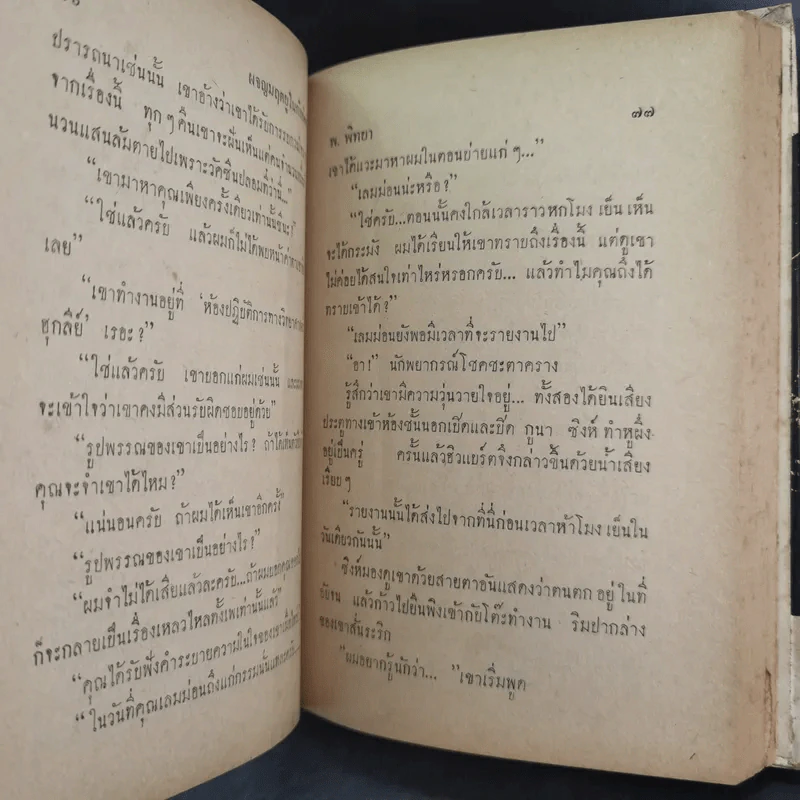 ผจญมฤตยู
ปรารถนาเช่นนั้น เขาอ้างว่าเขาได้รับการ
จากเรื่องนี้ ทุก ๆ คืนเขาจะฝันเห็นแต่คนจำนวน
นวนแสนล้มตายไปเพราะวัคซีนปลอมที่ว่านี้...”
“เขามาหาคุณเพียงครั้งเดียวเท่านั้นซินะ?”
“ใช่แล้วครับ แล้วผมก็ไม่ได้พบหน้าค่าตา
เลย”
“เขาทำงานอยู่ที่ ‘ห้องปฏิบัติการทางวิทยา
ฮุกลีย์’ เรอะ?”
“ใช่แล้วครับ เขาบอกแก่ผมเช่นนั้น และ
จะเข้าใจว่าเขาคงมีส่วนรับผิดชอบอยู่ด้วย”
“รูปพรรณของเขาเป็นอย่างไร? ถ้าได้เห็น
คุณจะจำเขาได้ไหม?”
“แน่นอนครับ ถ้าผมได้เห็นเขาอีกครั้ง”
“รูปพรรณของเขาเป็นอย่างไร?”
“ผมจำไม่ได้เสียแล้วละครับ...ถ้าผมบอกคุณ
ก็จะกลายเป็นเรื่องเหลวไหลทั้งเพเท่านั้นแล้”
“คุณได้รับฟังคำระบายความในใจของเขาเมื่อ
“ในวันที่คุณเลมม่อนถึงแก่กรรมนั้นแหละครับ
พ. พิทยา
๗๗
เขาได้แวะมาหาผมในตอนบ่ายแก่ ๆ...”
“เลมม่อนน่ะหรือ?”
“ใช่ครับ...ตอนนั้นคงใกล้เวลาราวหกโมง เย็น เห็น
จะได้กระมัง ผมได้เรียนให้เขาทราบถึงเรื่องนี้ แต่ดูเขา
ไม่ค่อยได้สนใจเท่าไหร่หรอกครับ... แล้วทำไมคุณถึงได้
ทราบเข้าได้?”
“เลมม่อนยังพอมีเวลาที่จะรายงานไป”
“อา!” นักพยากรณ์โชคชะตาคราง
รู้สึกว่าเขามีความวุ่นวายใจอยู่... ทั้งสองได้ยินเสียง
ประตูทางเข้าห้องชั้นนอกเปิดและปิด กูนา ซิงห์ ทำหูผึ่ง
อยู่เป็นครู่ ครั้นแล้วฮิวแบร์ตจึงกล่าวขึ้นด้วยน้ำเสียง
เรียบๆ
“รายงานนั้นได้ส่งไปจากที่นี่ก่อนเวลาห้าโมง เย็นใน
วันเดียวกันนั้น”
ซิงห์มองดูเขาด้วยสายตาอันแสดงว่าตนตก อยู่ ในที่
อับจน แล้วก้าวไปยืนพิงเข้ากับโต๊ะทำงาน ริมฝีปากล่าง
ของเขาสั่นระริก
“ผมอยากรู้นักว่า... ”เขาเริ่มพูด